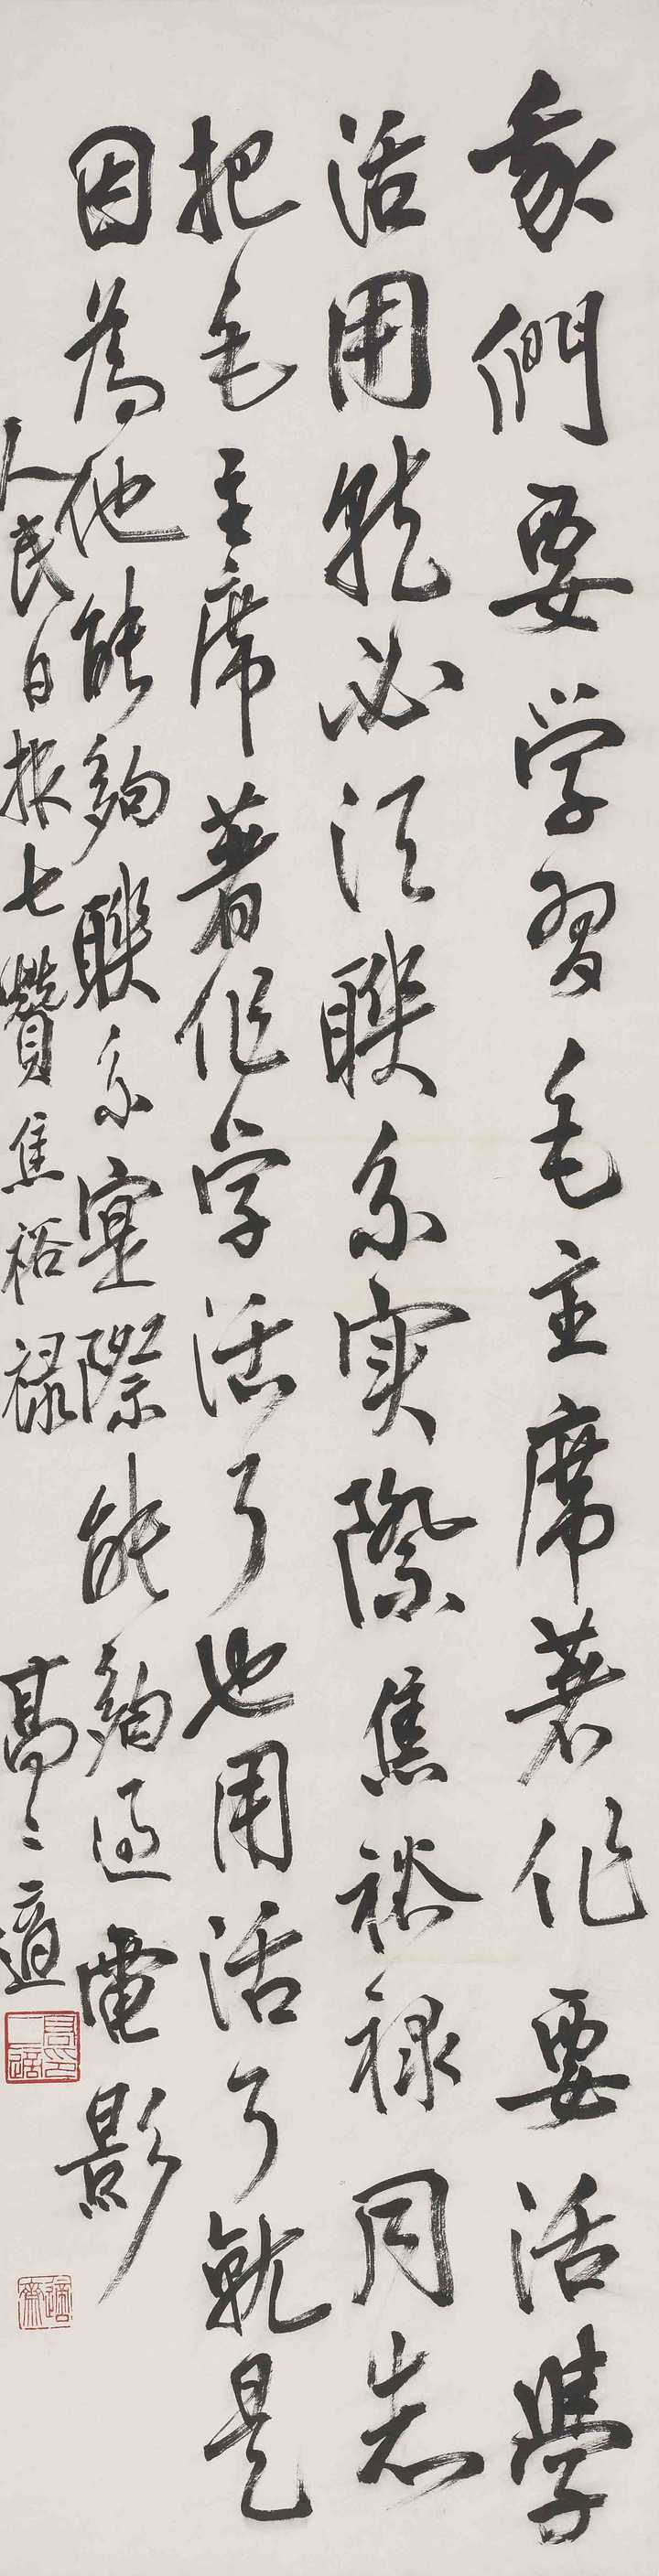 我們要学習毛主席著作要活學
活用就必须聯系实際焦裕禄同志
把毛主席著作学活了也用活了就是
因為他能夠聯系寔際能夠過電影
人民日报七贊焦裕禄 高二適